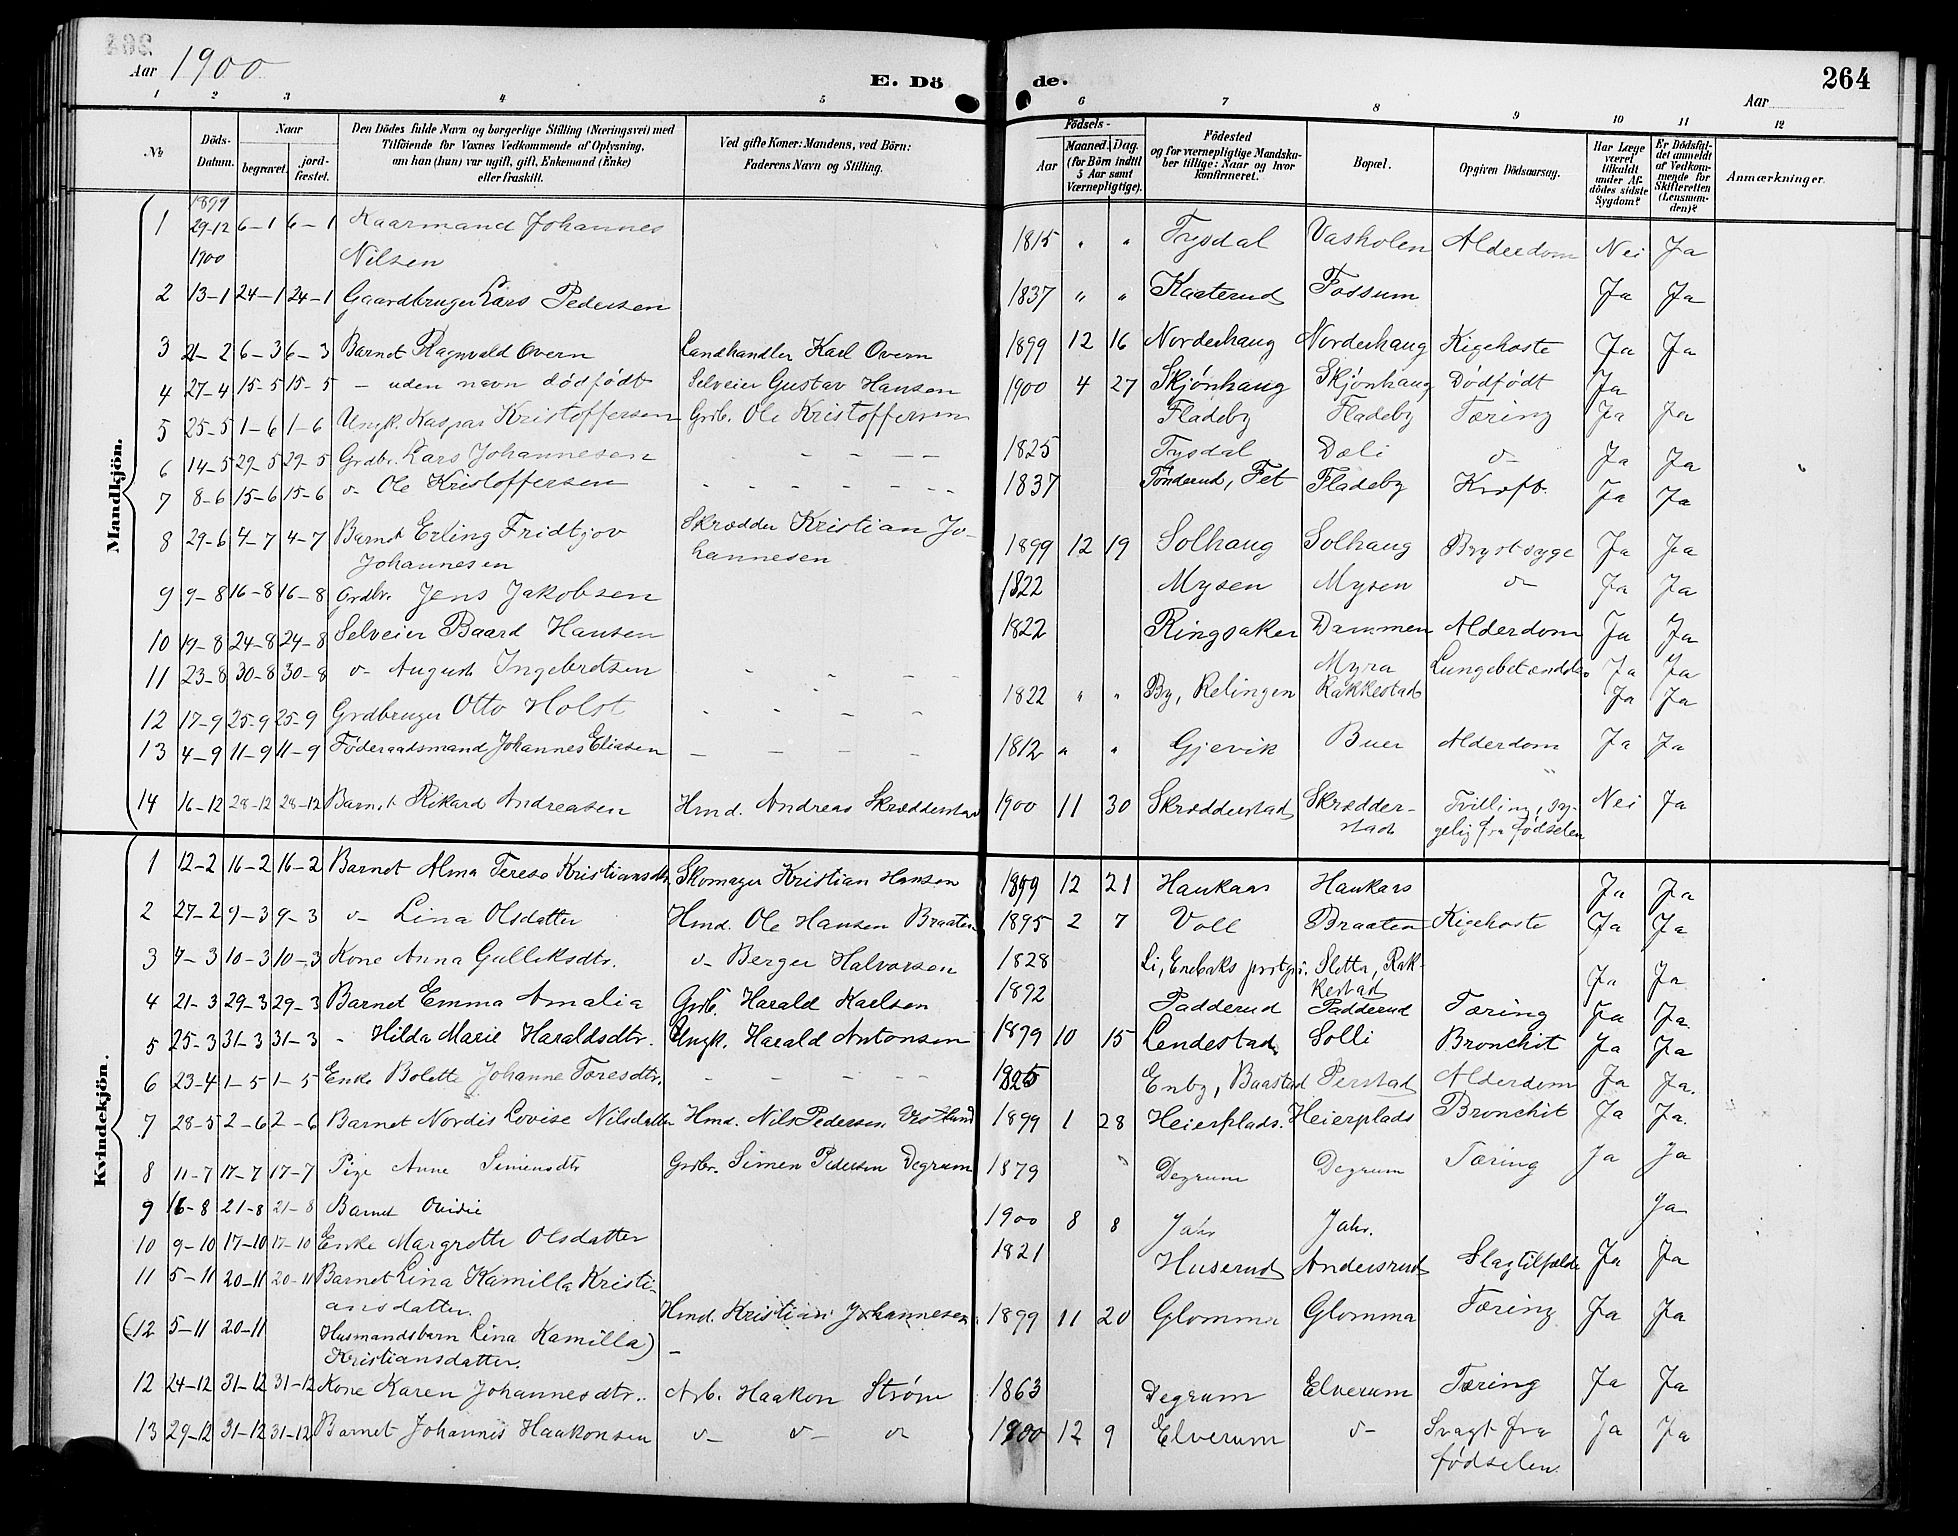 Aar 1900
E. Döde.
264
Aar
1 2 3 4 5 6 7 8 9 10 11 12
No | Döds-Datum. | Naar begravet. | jord-fæstet. | Den Dödes fulde Navn og borgerlige Stilling (Næringsvei) med Tilföiende for Voxnes Vedkommende af Oplysning, om han (hun) var ugift, gift, Enkemand (Enke) eller fraskilt. | Ved gifte Koner: Mandens, ved Börn: Faderens Navn og Stilling. | Födsels- Aar | Maaned. | Dag. (for Börn indtil 5 Aar samt Værnepligtige). | Födested og for værnepligtige Mandskaber tillige: Naar og hvor konfirmeret. | Bopæl. | Opgiven Dödsaarsag. | Har Læge været tilkaldt under Afdödes sidste Sygdom? | Er Dödsfaldet anmeldt af Vedkommende for Skifteretten (Lensmanden)? | Anmærkninger.
Mandkjön.
1899
1 | 29-12 | 6-1 | 6-1 | Kaarmand Johannes Nilsen | | 1815 | " | " | Trysdal | Vasholen | Alderdom | Nei | Ja
1900
2 | 13-1 | 24-1 | 24-1 | Gaardbruger Lars Pedersen | | 1837 | " | " | Kaaterud | Fossum | | Ja | Ja
3 | 21-2 | 6-3 | 6-3 | Barnet Ragnvald Overn | Landhandler Karl Overn | 1899 | 12 | 16 | Norderhaug | Norderhaug | Kigehoste | Ja | Ja
4 | 27-4 | 15-5 | 15-5 | - uden navn dødfødt | Selveier Gustav Hansen | 1900 | 4 | 27 | Skjønhaug | Skjønhaug | Dødfødt | Ja
5 | 25-5 | 1-6 | 1-6 | Ungk. Kaspar Kristoffersen | Grdb. Ole Kristoffersen | | | | Fladeby | Fladeby | Tæring | Ja | Ja
6 | 14-5 | 29-5 | 29-5 | Grdbr. Lars Johannesen | - - - - | 1825 | | | Trysdal | Dæli | v- | Ja | Ja
7 | 8-6 | 15-6 | 15-6 | v- Ole Kristoffersen | - - - - | 1837 | | | Tønderud, Fet | Fladeby | Kræft. | Ja | Ja
8 | 29-6 | 4-7 | 4-7 | Barnet Erling Fridtjov Johannesen | Skrædder Kristian Johannesen | 1899 | 12 | 19 | Solhaug | Solhaug | Brystsyge | Ja | Ja
9 | 9-8 | 16-8 | 16-8 | Grdbr. Jens Jakobsen | | 1822 | | | Mysen | Mysen | v- | Ja | Ja
10 | 19-8 | 24-8 | 24-8 | Selveier Baard Hansen | | 1822 | | | Ringsaker | Dammen | Alderdom | Ja | Ja
11 | 23-8 | 30-8 | 30-8 | v- August Ingebretsen | - - - - | | | | | Myra | Lungebetændelse | Ja | Ja
12 | 17-9 | 25-9 | 25-9 | Grdbruger Otto Holst | - - - - | 1822 | " | " | By, Relingen | Rakkestad | | Ja | Ja
13 | 4-9 | 11-9 | 11-9 | Føderaadsmand Johannes Eliasen | - - - - | 1812 | " | " | Gjevik | Buer | Alderdom | Ja | Ja
14 | 16-12 | 28-12 | 28-12 | Barnet Rikard Andreasen | Hmd. Andreas Skrædderstad | 1900 | 11 | 30 | Skrædderstad | Skrædderstad | Tvilling, sygelig fra fødselen | Nei | Ja
Kvindekjön.
1 | 12-2 | 16-2 | 16-2 | Barnet Alma Terese Kristiansdtr. | Skomager Kristian Hansen | 1899 | 12 | 21 | Haukaas | Haukaas | | Ja | Ja
2 | 27-2 | 9-3 | 9-3 | v- Lina Olsdatter | Hmd. Ole Hansen Braaten | 1895 | 2 | 7 | Voll | Braaten | Kigehoste | Ja | Ja
3 | 4-3 | 10-3 | 10-3 | Kone Anna Gulliksdtr. | v- Berger Halvorsen | 1828 | | | Li, Enebaks prstgj. | Sletta, Rakkestad | | Ja | Ja
4 | 21-3 | 29-3 | 29-3 | Barnet Emma Amalia | Grdb. Harald Karlsen | 1892 | | | Padderud | Padderud | Tæring | Ja | Ja.
5 | 25-3 | 31-3 | 31-3 | - Hilda Marie Haraldsdtr. | Ungk. Harald Antonsen | 1899 | 10 | 15 | Lendestad | Solli | Bronchit | Ja | Ja
6 | 23-4 | 1-5 | 1-5 | Enke Bolette Johanne Toresdtr. | - - - - | 1825 | | | Enby, Baastad | Perstad | Alderdom | Ja | Ja.
7 | 28-5 | 2-6 | 2-6 | Barnet Nordis Lovise Nilsdatter | Hmd. Nils Pedersen | 1899 | 1 | 28 | Heierplads. | Heierplads | Bronchit | Ja | Ja.
8 | 11-7 | 17-7 | 17-7 | Pige Anne Simensdtr | Grdbr. Simen Pedersen Degrum | 1879 | | | Degrum | Degrum | Tæring | Ja | Ja
9 | 16-8 | 21-8 | 21-8 | Barnet Ovidie | | 1900 | 8 | 8 | Jahr | Jahr. | | | Ja
10 | 9-10 | 17-10 | 17-10 | Enke Margrette Olsdatter | | 1821 | | | Huserud | Andersrud | Slagtilfælde | Ja | Ja
11 | 5-11 | 20-11 | 20-11 | Barnet Lina Kamilla Kristiansdatter. | Hmd. Kristian Johannesen | 1899 | 11 | 20 | Glomma | Glomma | Tæring | Ja | Ja
(12 | 5-11 | 20-11 | | Husmandsbarn Lina Kamilla) Kristiansdatter. | -
12 | 24-12 | 31-12 | 31-12 | Kone Karen Johannesdtr. | Arb. Haakon Strøm | 1863 | | | Degrum | Elverum | Tæring | Ja | Ja
13 | 29-12 | 31-12 | 31-12 | Barnet Johannes Haakonsen | v- v- v- | 1900 | 12 | 9 | Elverum | v- | Svagt fra fødselen. | Ja | Ja